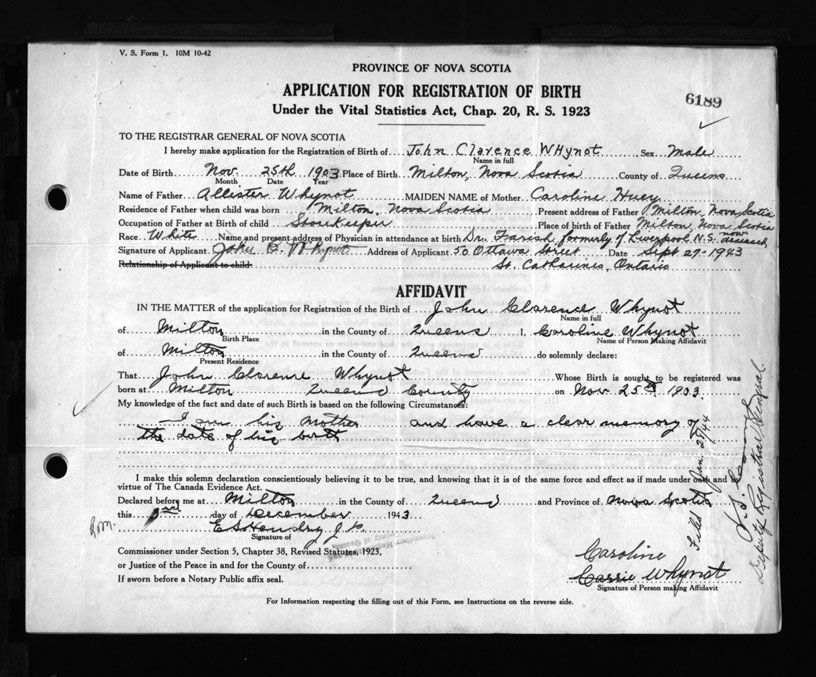 V. S. Form 1. 10M 10-42
PROVINCE OF NOVA SCOTIA
APPLICATION FOR REGISTRATION OF BIRTH
Under the Vital Statistics Act, Chap. 20, R. S. 1923
6189
TO THE REGISTRAR GENERAL OF NOVA SCOTIA
I hereby make application for the Registration of Birth of John Clarence Whynot Sex Male
Name in full
Date of Birth Nov. 25th 1903 Place of Birth Milton, Nova Scotia County of Queens
Month Date Year
Name of Father Allister Whynot MAIDEN NAME of Mother Caroline Huey
Residence of Father when child was born Milton, Nova Scotia Present address of Father Milton, Nova Scotia
Occupation of Father at Birth of child Storekeeper Place of birth of Father Milton, Nova Scotia
Race White Name and present address of Physician in attendance at birth Dr. Farish formerly of Liverpool N.S. now deceased
Signature of Applicant John C. Whynot Address of Applicant 50 Ottawa Street Date Sept 27-1943
Relationship of Applicant to child St. Catharines, Ontario
AFFIDAVIT
IN THE MATTER of the application for Registration of the Birth of John Clarence Whynot
Name in full
of Milton in the County of Queens I, Caroline Whynot
Birth Place Name of Person Making Affidavit
of Milton in the County of Queens do solemnly declare:
Present Residence
That John Clarence Whynot Whose Birth is sought to be registered was
born at Milton Queens County on Nov 25th 1903.
My knowledge of the fact and date of such Birth is based on the following Circumstances:
I am his mother and have a clear memory of
the date of his birth
I make this solemn declaration conscientiously believing it to be true, and knowing that it is of the same force and effect as if made under oath and by
virtue of The Canada Evidence Act.
Declared before me at Milton in the County of Queens and Province of Nova Scotia
this 3rd day of December 1943
E S Hendry J.P.
Signature of
Commissioner under Section 5, Chapter 38, Revised Statutes, 1923,
or Justice of the Peace in and for the County of
If sworn before a Notary Public affix seal.
Caroline
Carrie Whynot
Signature of Person making Affidavit
For Information respecting the filling out of this Form, see Instructions on the reverse side.
Filed Jan. 28/44
Deputy Registrar General